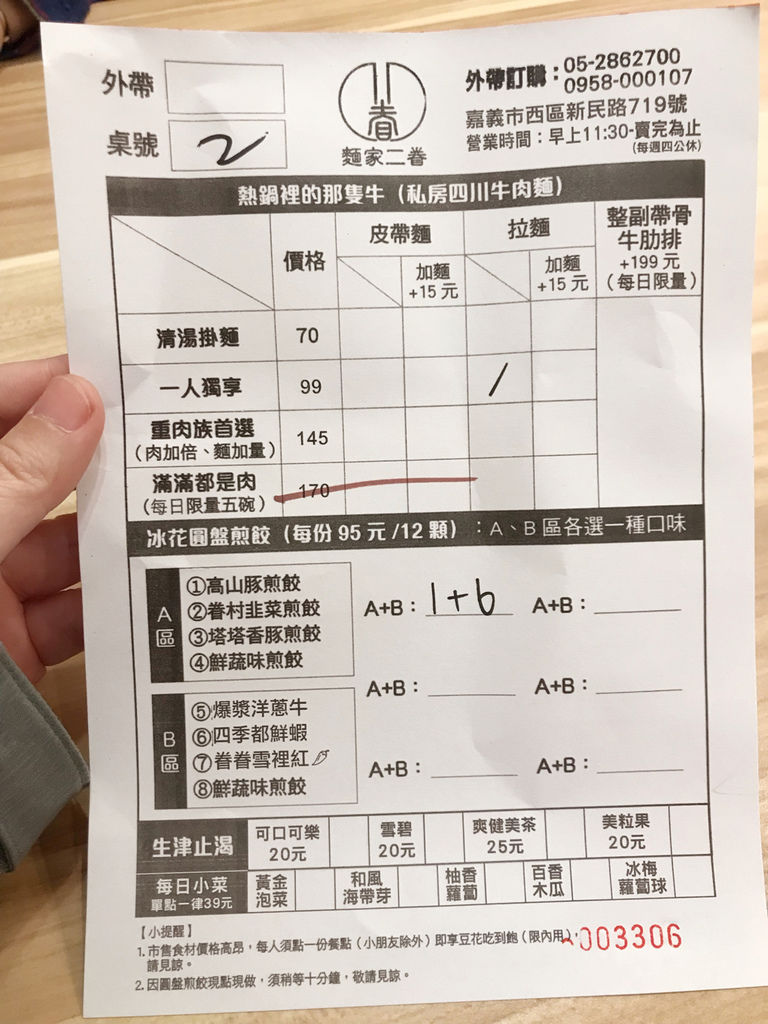 外帶
桌號 2
麵家二眷
外帶訂購：05-2862700
0958-000107
嘉義市西區新民路719號
營業時間：早上11:30-賣完為止
(每週四公休)
熱鍋裡的那隻牛（私房四川牛肉麵）
價格
皮帶麵
加麵
+15 元
拉麵
加麵
+15 元
整副帶骨
牛肋排
+199 元
（每日限量）
清湯掛麵 70
一人獨享 99 /
重肉族首選 145
（肉加倍、麵加量）
滿滿都是肉 170
（每日限量五碗）
冰花圓盤煎餃（每份 95 元 /12 顆）：A、B 區各選一種口味
A
區
①高山豚煎餃
②眷村韭菜煎餃
③塔塔香豚煎餃
④鮮蔬味煎餃
B
區
⑤爆漿洋蔥牛
⑥四季都鮮蝦
⑦眷眷雪裡紅
⑧鮮蔬味煎餃
A+B：1+6 A+B：
A+B： A+B：
A+B： A+B：
生津止渴
可口可樂
20元
雪碧
20元
爽健美茶
25元
美粒果
20元
每日小菜
單點一律39元
黃金
泡菜
和風
海帶芽
柚香
蘿蔔
百香
木瓜
冰梅
蘿蔔球
【小提醒】
1. 市售食材價格高昂，每人須點一份餐點（小朋友除外）即享豆花吃到飽（限內用），
請見諒。
2. 因圓盤煎餃現點現做，須稍等十分鐘，敬請見諒。
003306